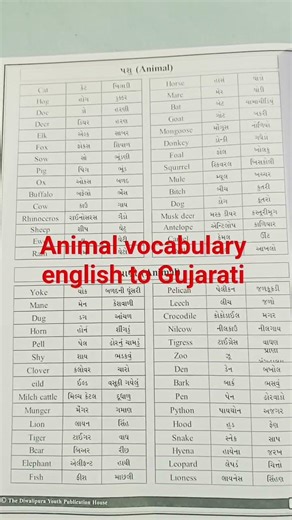 પશુ (Animal)
Cat કેટ બિલાડી
Hog હોગ ડુક્કર
Doe ડો હરણી
Deer ડિયર હરણ
Elk એલ્ક સાબર
Fox ફોક્સ શિયાળ
Sow સો ભૂંડણી
Pig પિગ ભૂંડ
Ox ઓક્સ બળદ
Buffalo બફેલો ભેંસ
Cow કાઉ ગાય
Rhinoceros ગેંડો
Sheep શીપ ઘેટું
Horse હોર્સ ઘોડો
Mare મેર ઘોડી
Bat બેટ
Goat ગોટ બકરી
Mongoose મોંગૂસ નોળિયો
Donkey ડોન્કી ગધેડો
Foal ફોલ
Squirrel ખિસકોલી
Mule મ્યુલ ખચ્ચર
Bitch બીચ કૂતરી
Dog ડોગ કૂતરો
Musk deer મસ્ક ડીયર કસ્તૂરીમૃગ
Antelope કાળિયાર
ઊંટ
આખલો
Animal vocabulary
english to Gujarati
Yoke યોક બળદની ધૂંસરી
Mane મેન કેશવાળી
Dug ડગ આંચળ
Horn હોર્ન શીંગડું
Pell પેલ ઢોરનું ચામડું
Shy શાય ભડકવું
Clover ક્લોવર ચારો
eild ઈલ્ડ વસૂકી ગયેલું
Milch cattle મિલ્ચ કેટલ દુધાળુ
Manger મેંજર ગમાણ
Lion લાયન સિંહ
Tiger ટાઈગર વાઘ
Bear બિઅર રીંછ
Elephant એલીફન્ટ હાથી
Fish ફીશ માછલી
Pelican પેલીકન જળકૂકડી
Leech લીચ જળો
Crocodile ક્રોકોડાઈલ મગર
Nilcow નીલકાઉ નીલગાય
Tigress ટાઈગ્રેસ વાઘણ
Zoo ઝૂ
Den ડેન બખોલ
Bark બાર્ક ભસવું
Pen પેન ઢોરવાડો
Python પાયથોન અજગર
Hood હૂડ ફેણ
Snake સ્નેક સાપ
Hyena હાયેના જરખ
Leopard લેપર્ડ ચિત્તો
Lioness લાયનેસ સિંહણ
© The Divalipura Youth Publication House